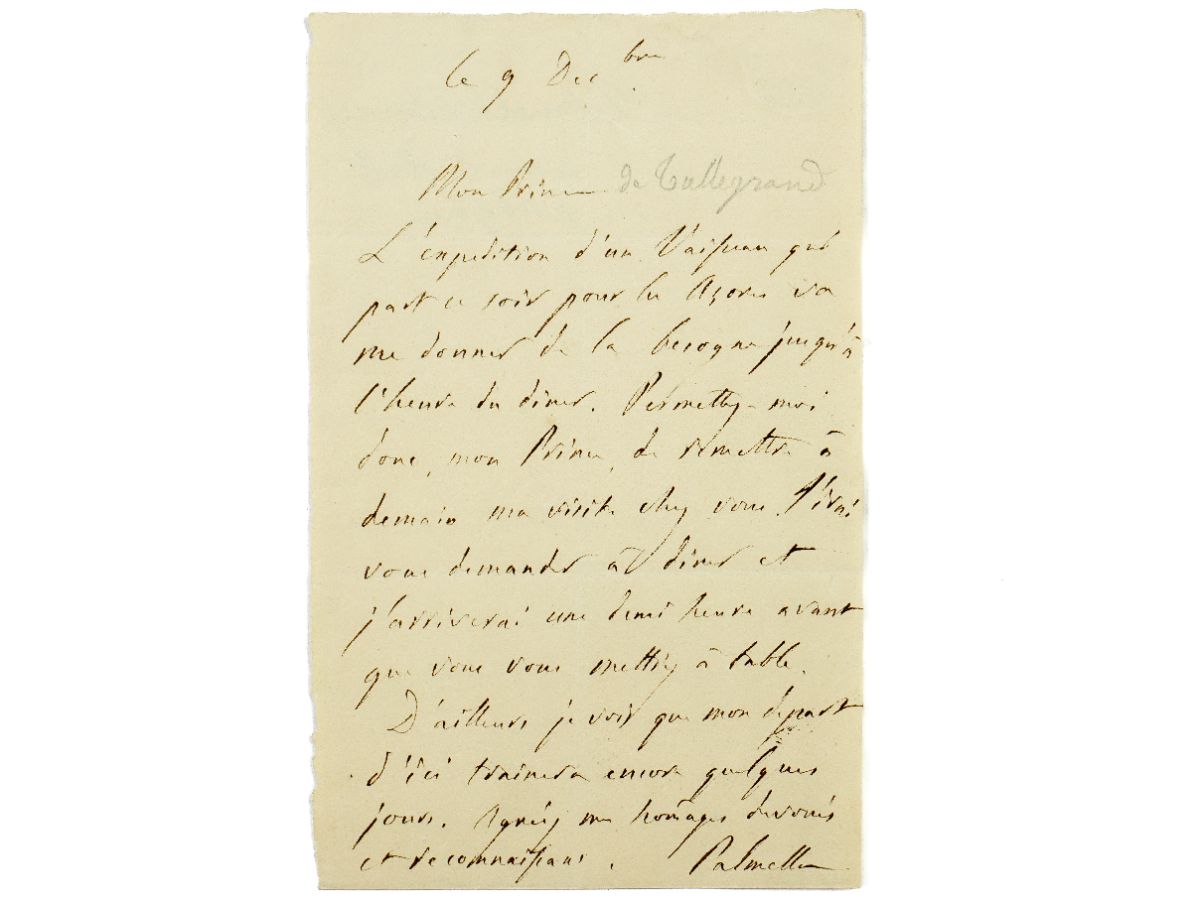 le 9 Dec bre
Mon Prince de Talleyrand
L'éxpedition d'un Vaisseau qui
part ce soir pour les Açores va
me donner de la besogne jusqu'à
l'heure du diner. Permettez-moi
donc, mon Prince, de remettre à
demain ma visite chez vous. J'irai
vous demander à diner et
j'arriverai une demi heure avant
que vous vous mettiez à table.
D'ailleurs je vois que mon départ
d'ici trainera encore quelques
jours. Agréez mes homages devoués
et reconnaissans. Palmella